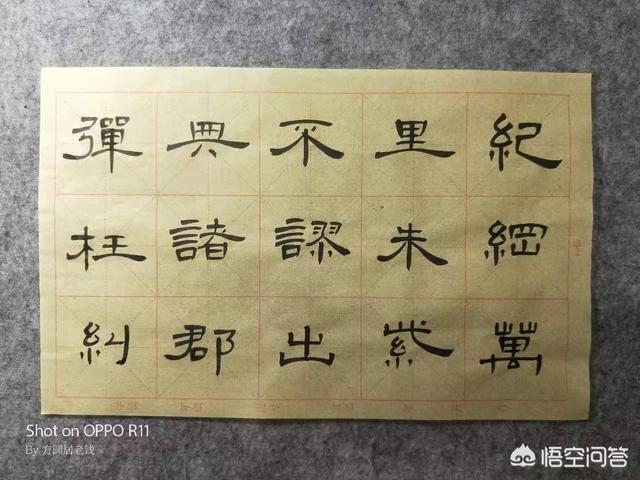 紀綱萬
里朱紫
不謬出
典諸郡
彈枉糾
Shot on OPPO R11
By 方圆居老钱
悟空问答